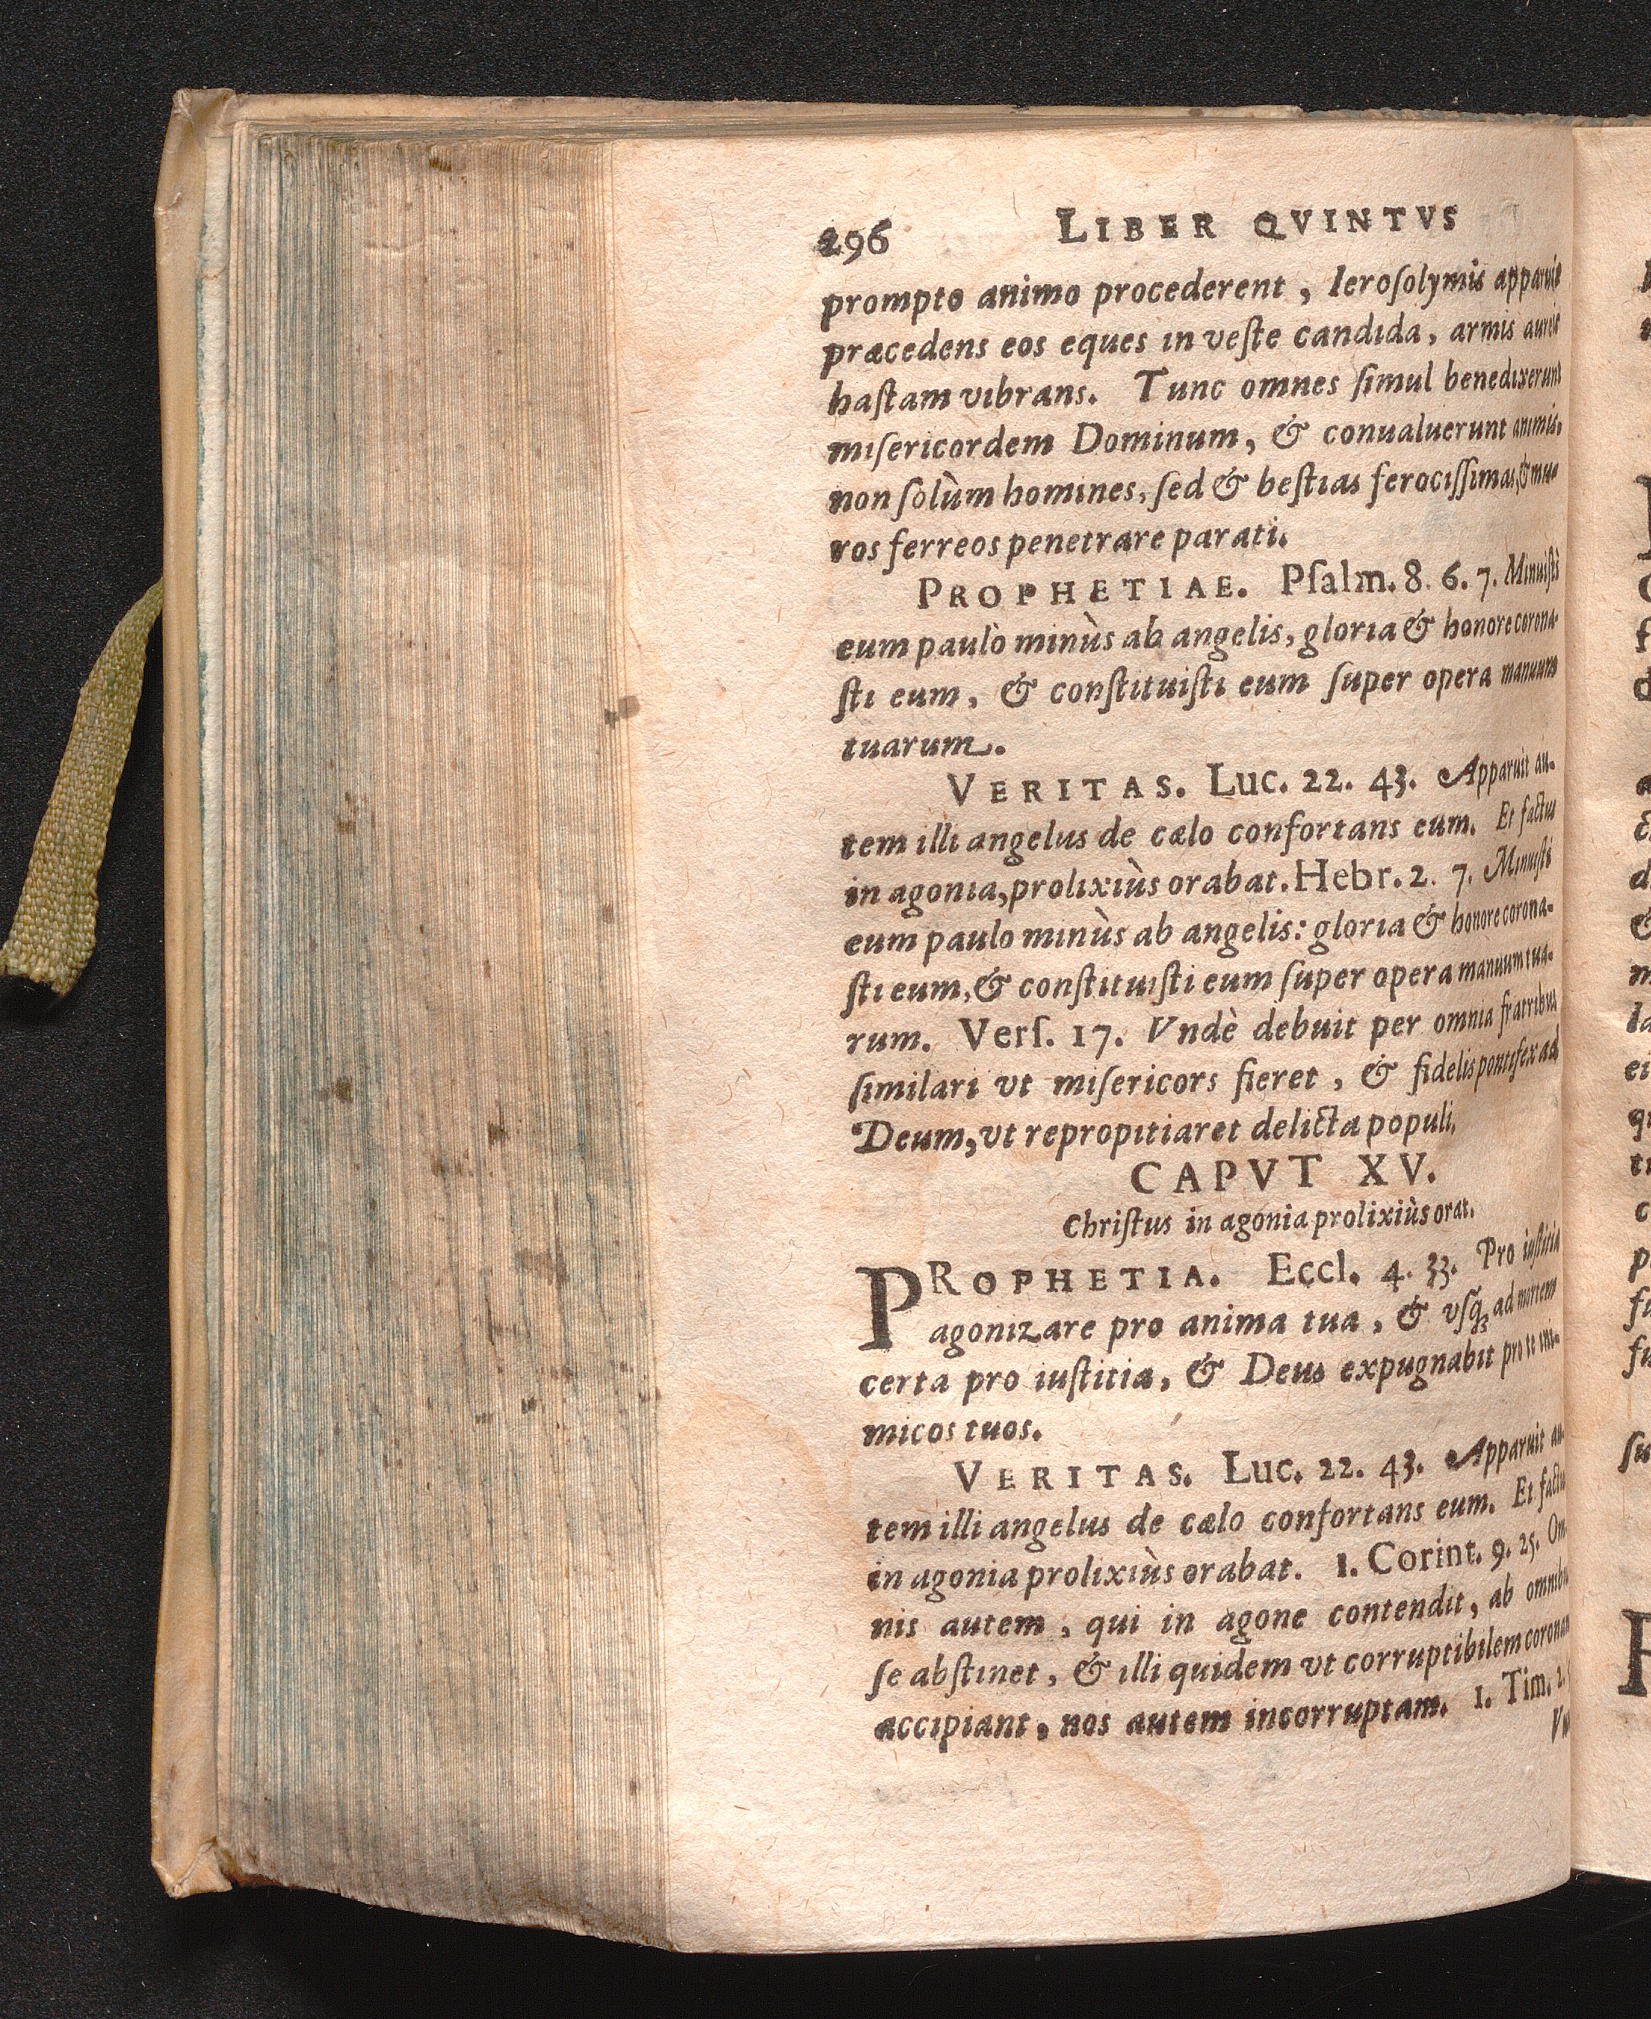 296 LIBER QVINTVS
prompto animo procederent, Ierosolymis apparuit
præcedens eos eques in veste candida, armis aureis
hastam vibrans. Tunc omnes simul benedixerunt
misericordem Dominum, & conualuerunt animis,
non solùm homines, sed & bestias ferocissimas, & mu-
ros ferreos penetrare parati.
PROPHETIAE. Psalm. 8. 6. 7. Minuisti
eum paulò minùs ab angelis, gloria & honore corona-
sti eum, & constituisti eum super opera manuum
tuarum.
VERITAS. Luc. 22. 43. Apparuit au-
tem illi angelus de cælo confortans eum. Et factus
in agonia, prolixiùs orabat. Hebr. 2. 7. Minuisti
eum paulo minùs ab angelis: gloria & honore corona-
sti eum, & constituisti eum super opera manuum tua-
rum. Vers. 17. Vndè debuit per omnia fratribus
similari vt misericors fieret, & fidelis pontifex ad
Deum, vt repropitiaret delicta populi.
CAPVT XV.
Christus in agonia prolixiùs orat.
PROPHETIA. Eccl. 4. 33. Pro iustitia
agonizare pro anima tua, & vsq; ad mortem
certa pro iustitia, & Deus expugnabit pro te ini-
micos tuos.
VERITAS. Luc. 22. 43. Apparuit au-
tem illi angelus de cælo confortans eum. Et factus
in agonia prolixiùs orabat. 1. Corint. 9. 25. Om-
nis autem, qui in agone contendit, ab omnibus
se abstinet, & illi quidem vt corruptibilem coronam
accipiant, nos autem incorruptam. 1. Tim. 2.